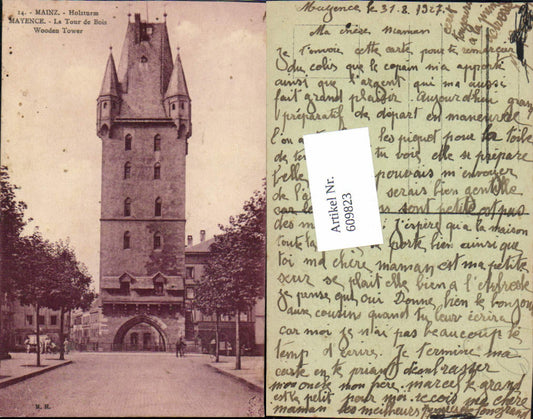 14. - MAINZ. - Holzturm
MAYENCE. - La Tour de Bois
Wooden Tower
N. H.
Mayence le 31.8.1927.
Ma chère maman
Je t'envoie cette carte pour te remercier
du colis que le copain m'a apporté
ainsi que l'argent qui m'a aussi
fait grand plaisir. Aujourd'hui grand
préparatif de départ en manœuvre
l'on a les piquet pour la toile
de tu vois elle se prépare
belle pouvais m'envoyer
de l'a serais bien gentille
car les sont petite est pas
des m J'espère qu'à la maison
toute la porte bien ainsi que
toi ma chère maman est ma petite
sœur se plait elle bien a
je pense que oui Donne bien le bonjour
aux cousins quand tu leur écrira
car moi je n'ai pas beaucoup le
temp d'écrire. Je termine ma
carte en te priant d'embrasser
mon oncle mon père. marcel le grand
est la petit pour moi. reçois ma chère
maman les meilleurs
Artikel Nr.
609823